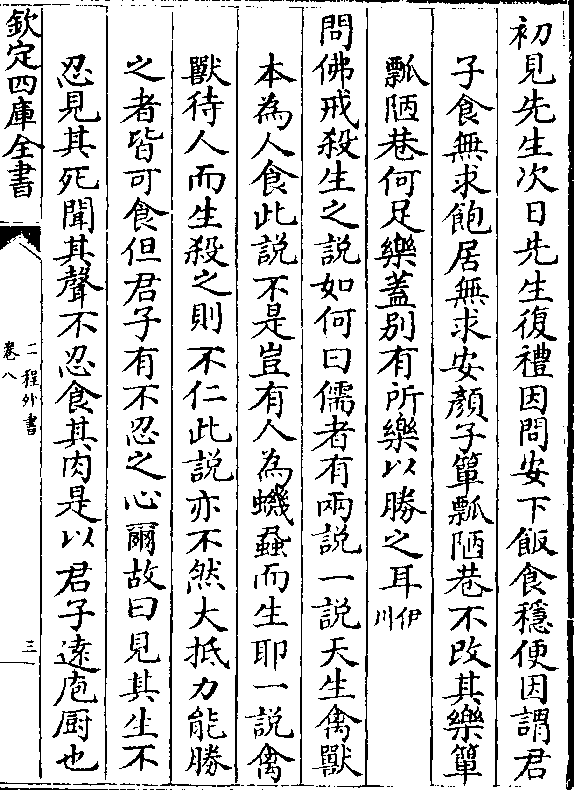 初見先生次日先生復禮因問安下飯食穩便因謂君
子食無求飽居無求安顏子簞瓢陋巷不改其樂簞
瓢陋巷何足樂蓋别有所樂以勝之耳伊川
問佛戒殺生之說如何曰儒者有兩說一說天生禽獸
本為人食此說不是豈有人為蟣蝨而生耶一說禽
獸待人而生殺之則不仁此說亦不然大抵力能勝
之者皆可食但君子有不忍之心爾故曰見其生不
忍見其死聞其聲不忍食其肉是以君子遠庖厨也
欽定四庫全書
二程外書
卷八
三